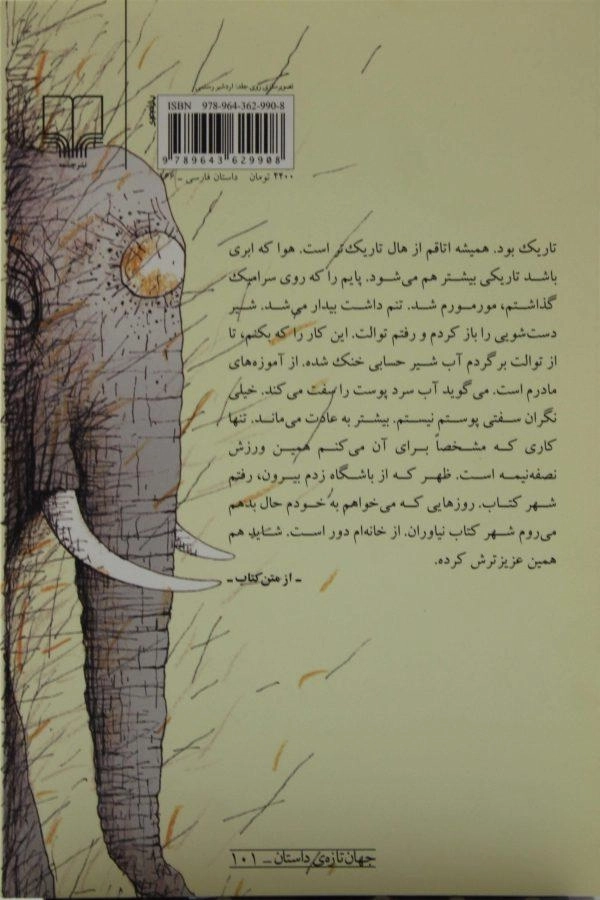 تصویرسازی روی جلد: اردشیر رستمی
ISBN 978-964-362-990-8
9 789643 629908
۴۴۰۰ تومان داستان فارسی ـ
نشرچشمه
تاریک بود. همیشه اتاقم از هال تاریک‌تر است. هوا که ابری
باشد تاریکی بیشتر هم می‌شود. پایم را که روی سرامیک
گذاشتم، مورمورم شد. تنم داشت بیدار می‌شد. شیر
دست‌شویی را باز کردم و رفتم توالت. این کار را که بکنم، تا
از توالت برگردم آب شیر حسابی خنک شده. از آموزه‌های
مادرم است. می‌گوید آب سرد پوست را سفت می‌کند. خیلی
نگران سفتی پوستم نیستم. بیشتر به عادت می‌ماند. تنها
کاری که مشخصاً برای آن می‌کنم همین ورزش
نصفه‌نیمه است. ظهر که از باشگاه زدم بیرون، رفتم
شهر کتاب. روزهایی که می‌خواهم به خودم حال بدهم
می‌روم شهر کتاب نیاوران. از خانه‌ام دور است. شاید هم
همین عزیزترش کرده.
ـ از متن کتاب ـ
جهان تازه‌ی داستان ـ ۱۰۱